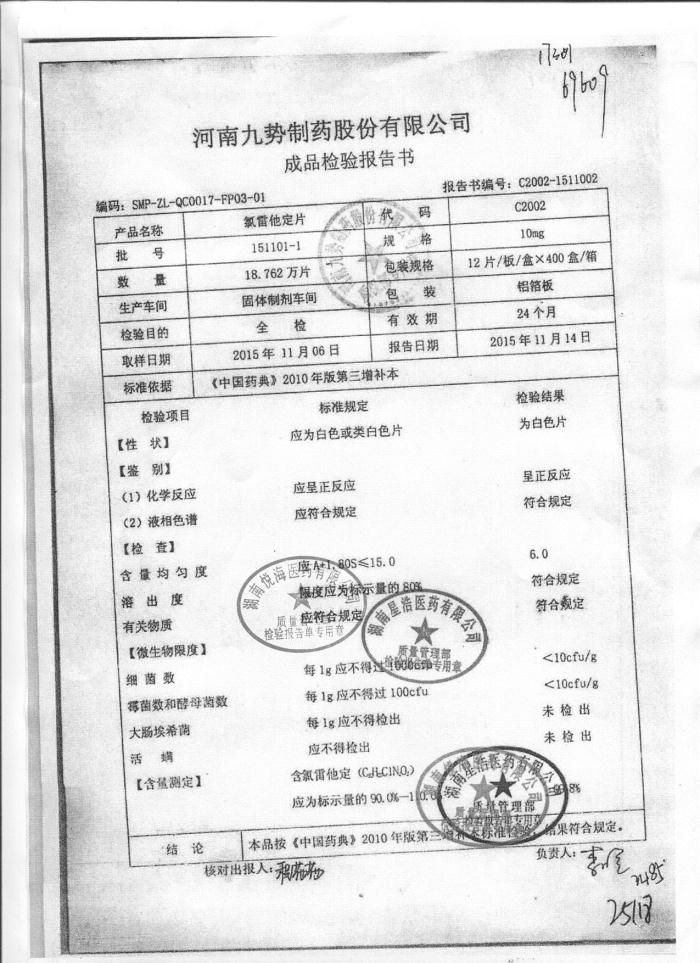 69609
河南九势制药股份有限公司
成品检验报告书
编码：SMP-ZL-QC0017-FP03-01 报告书编号：C2002-1511002
产品名称 氯雷他定片 代 码 C2002
批 号 151101-1 规 格 10mg
数 量 18.762 万片 包装规格 12 片/板/盒×400 盒/箱
生产车间 固体制剂车间 包 装 铝箔板
检验目的 全 检 有 效 期 24 个月
取样日期 2015 年 11 月 06 日 报告日期 2015 年 11 月 14 日
标准依据 《中国药典》2010 年版第三增补本
检验项目 标准规定 检验结果
【性 状】 应为白色或类白色片 为白色片
【鉴 别】
（1）化学反应 应呈正反应 呈正反应
（2）液相色谱 应符合规定 符合规定
【检 查】
含 量 均 匀 度 应 A+1.80S≤15.0 6.0
溶 出 度 限度应为标示量的 80% 符合规定
有关物质 应符合规定 符合规定
【微生物限度】
细 菌 数 每 1g 应不得过 1000cfu <10cfu/g
霉菌数和酵母菌数 每 1g 应不得过 100cfu <10cfu/g
大肠埃希菌 每 1g 应不得检出 未 检 出
活 螨 应不得检出 未 检 出
【含量测定】 含氯雷他定
应为标示量的 90.0%-110.0%
结 论 本品按《中国药典》2010 年版第三增补本标准检验，结果符合规定。
核对出报人： 负责人：
湖南悦海医药有限公司
质量管理部
检验报告单专用章
湖南星浩医药有限公司
质量管理部
检验报告单专用章
湖南星浩医药有限公司
质量管理部